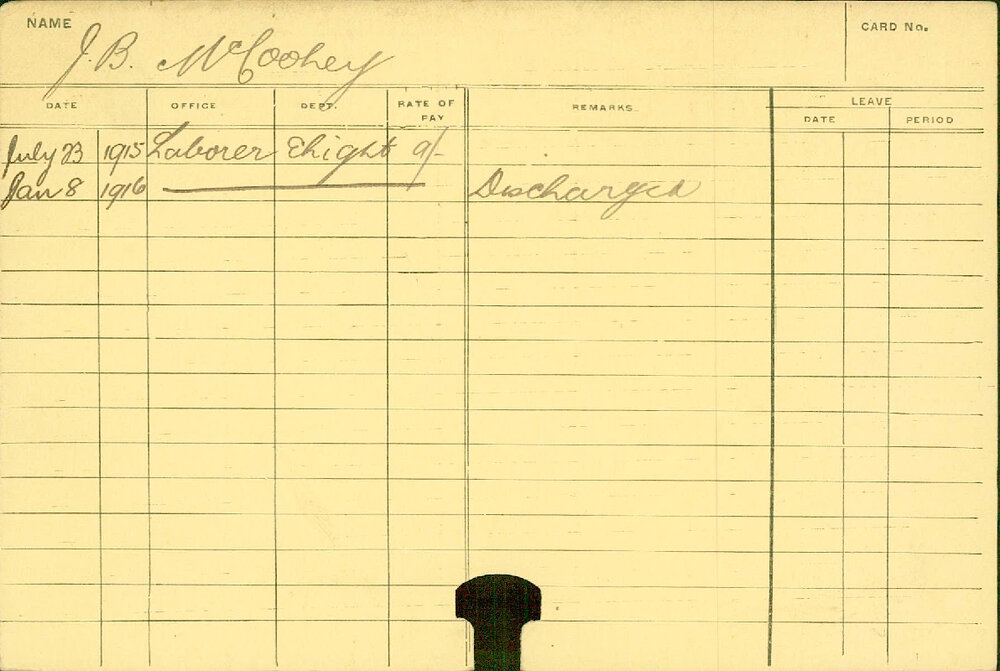 NAME
CARD No.
J. B. McCoohey
DATE OFFICE DEPT. RATE OF PAY REMARKS LEAVE
DATE PERIOD
July 23 1915 Laborer 9/-
Jan 8 1916 Discharged